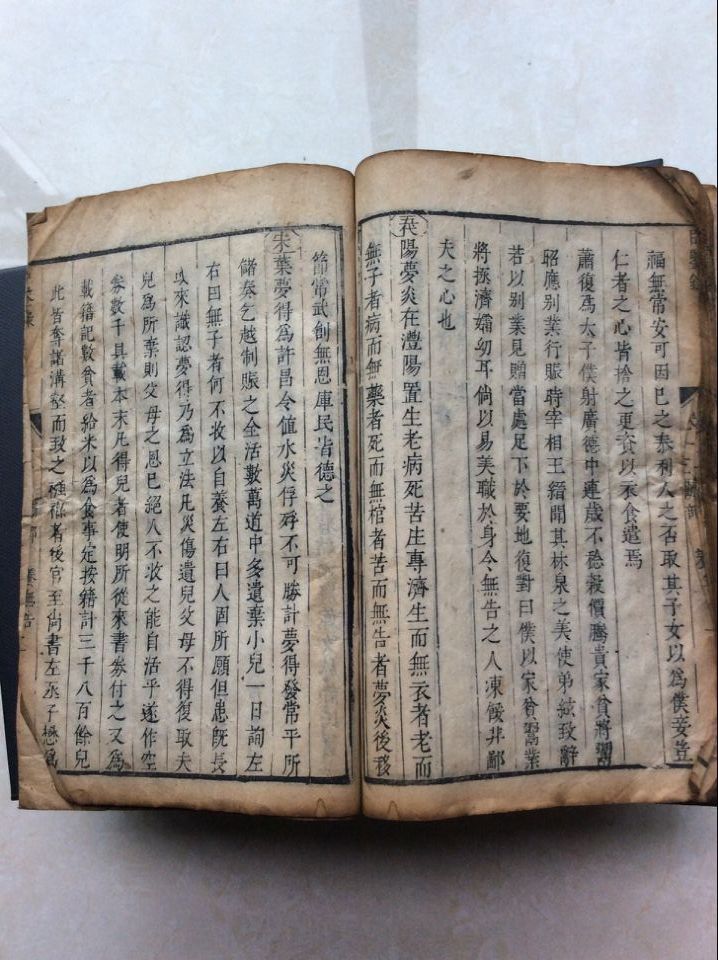 福無常安可因已之泰利人之否取其子女以爲僕妾豈
仁者之心皆捨之更資以衣食遣焉
蕭復爲太子僕射廣德中連歲不稔穀價騰貴家貧將鬻
昭應別業行賑時宰相王縉聞其林泉之美使弟紘致辭
若以別業見贈當處足下於要地復對曰僕以家貧鬻業
將拯濟孀幼耳倘以易美職於身令無告之人凍餒非鄙
夫之心也
陽夢炎在澧陽置生老病死苦庄專濟生而無衣者老而
無子者病而無藥者死而無棺者苦而無告者夢炎後移
節常武創無恩庫民皆德之
宋葉夢得爲許昌令值水災俘殍不可勝計夢得發常平所
儲奏乞越制賑之全活數萬道中多遺棄小兒一日詢左
右曰無子者何不收以自養左右曰人固所願但患既長
以來識認夢得乃爲立法凡災傷遺兒父母不得復取夫
兒爲所棄則父母之恩已絕人不收之能自活乎遂作空
券數千具載本末凡得兒者使明所從來書券付之又爲
載籍記數貧者給米以爲食事定按籍計三千八百餘兒
此皆奪諸溝壑而致之襁褓者後官至尚書左丞子懋爲